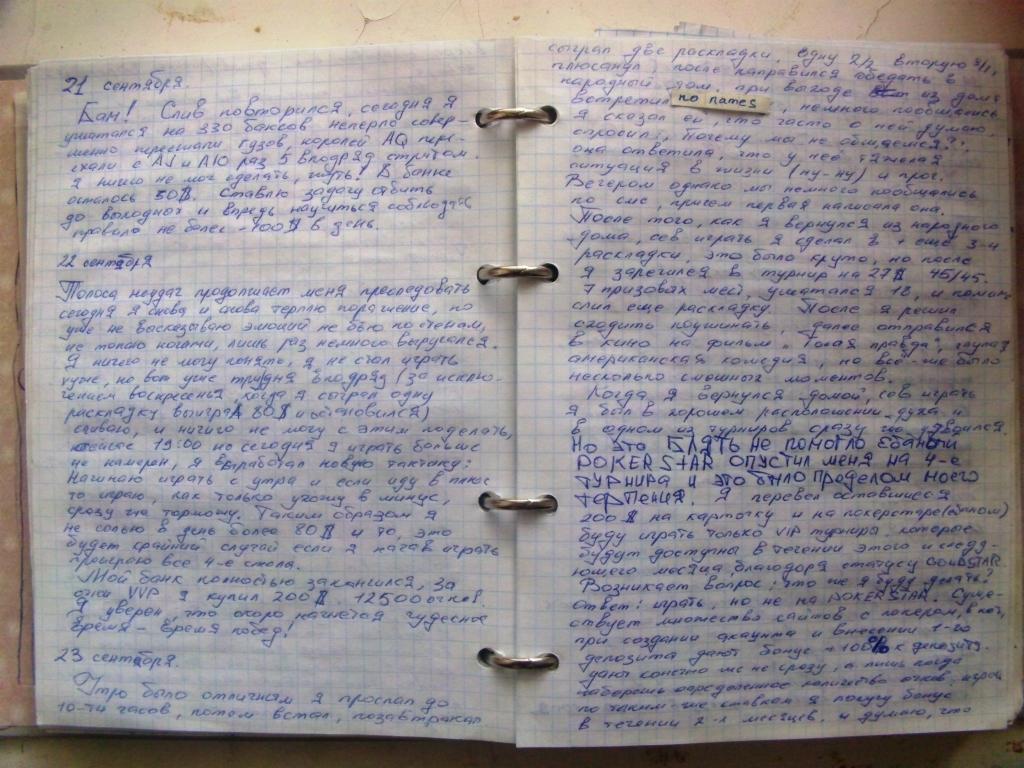 21 сентября.
Бам! Слив повторился, сегодня я
укатался на 330 баксов. неперло совер-
шенно пересигали тузов, королей AQ пере-
ехали с AJ и A10 раз 5 вподряд стритом.
Я ничего не мог сделать, жуть! В банке
осталось 50$. Ставлю задачу отбить
до выходных и впредь научиться соблюдать
правило не более -100$ в день.
22 сентября
Полоса неудач продолжает меня преследовать
сегодня я снова и снова терплю поражение, но
уже не высказываю эмоций не бью по стенам,
не топаю ногами, лишь раз немного выругался.
Я ничего не могу понять, я не стал играть
хуже, но вот уже три дня вподряд (за исклю-
чением воскресенья, когда я сыграл одну
раскладку выиграл 80$ и остановился)
сливаю, и ничего не могу с этим поделать,
сейчас 19:00 но сегодня я играть больше
не намерен, я выработал новую тактику:
Начинаю играть с утра и если иду в плюс
то играю, как только ухожу в минус,
сразу же торможу. Таким образом я
не солью в день более 80$ и то, это
будет крайний случай если я начав играть
проиграю все 4-е стола.
Мой банк полностью закончился, за
очки VVP я купил 200$. 12500 очков.
Я уверен, что скоро начнется чудесное
время - время побед!
23 сентября.
Утро было отличным я проспал до
10-ти часов, потом встал, позавтракал
сыграл две раскладки, одну 2/2 вторую 3/1,
плюсанул, после направился обедать в
народный дом, при выходе из дома
встретил no names, немного пообщались
Я сказал ей, что часто о ней думаю
спросил: "Почему мы не общаемся?",
она ответила, что у неё тяжелая
ситуация в жизни (ну-ну) и проч.
Вечером однако мы немного пообщались
по смс, причем первая написала она.
После того, как я вернулся из народного
дома, сев играть я сделал в + еще 3-и
раскладки, это было круто, но после
я зарегился в турнир на 27$ 45/45.
7 призовых мест, укатался 18, и потом
слил еще раскладку. После я решил
сходить покушать, далее отправился
в кино на фильм "Голая правда", глупая
американская комедия, но всё-же было
несколько смешных моментов.
Когда я вернулся домой, сев играть
я был в хорошем расположении духа и
в одном из турниров сразу же удвоился.
Но это БЛЯТЬ не помогло ебаный
POKERSTAR опустил меня на 4-е
турнира и это было пределом моего
терпения. Я перевел оставшиеся
200$ на карточку и на покерстаре
буду играть только VIP турниры, которые
будут доступны в течении этого и следу-
ющего месяца благодоря статусу GOLDSTAR.
Возникает вопрос: что же я буду делать?
ответ: играть, но не на POKERSTAR. Суще-
ствует множество сайтов с покером, в кот,
при создании акаунта и внесении 1-го
депозита дают бонус +100% к депозиту.
дают конечно же не сразу, а лишь когда
наберешь определенное количество очков, играя
по таким-же ставкам я получу бонус
в течении 2-х месяцев. и думаю, что